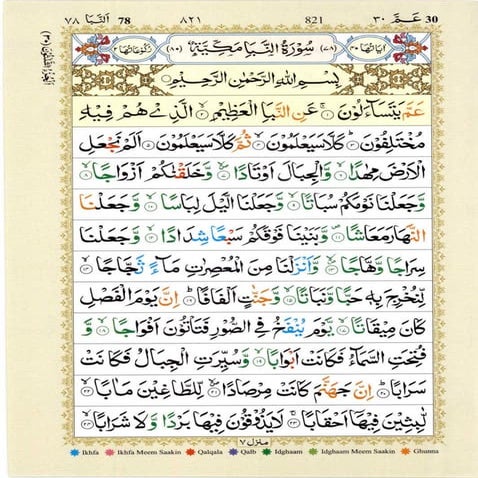 ٧٨ اَلنَّبَا 78 ٨٢١ 821 ٣٠ عَمَّ 30
اٰيَاتُهَا ٤٠ (٧٨) سُوْرَةُ النَّبَاِ مَكِّيَّةٌ (٨٠) رُكُوْعَاتُهَا ٢
بِسْمِ اللّٰهِ الرَّحْمٰنِ الرَّحِيْمِ
عَمَّ يَتَسَآءَلُوْنَ ۝١ عَنِ النَّبَاِ الْعَظِيْمِ ۝٢ الَّذِيْ هُمْ فِيْهِ
مُخْتَلِفُوْنَ ۝٣ كَلَّا سَيَعْلَمُوْنَ ۝٤ ثُمَّ كَلَّا سَيَعْلَمُوْنَ ۝٥ اَلَمْ نَجْعَلِ
الْاَرْضَ مِهٰدًا ۝٦ وَّالْجِبَالَ اَوْتَادًا ۝٧ وَّخَلَقْنٰكُمْ اَزْوَاجًا ۝٨
وَّجَعَلْنَا نَوْمَكُمْ سُبَاتًا ۝٩ وَّجَعَلْنَا الَّيْلَ لِبَاسًا ۝١٠ وَّجَعَلْنَا
النَّهَارَ مَعَاشًا ۝١١ وَّبَنَيْنَا فَوْقَكُمْ سَبْعًا شِدَادًا ۝١٢ وَّجَعَلْنَا
سِرَاجًا وَّهَّاجًا ۝١٣ وَّاَنْزَلْنَا مِنَ الْمُعْصِرٰتِ مَآءً ثَجَّاجًا ۝١٤
لِّنُخْرِجَ بِهٖ حَبًّا وَّنَبَاتًا ۝١٥ وَّجَنّٰتٍ اَلْفَافًا ۝١٦ اِنَّ يَوْمَ الْفَصْلِ
كَانَ مِيْقَاتًا ۝١٧ يَّوْمَ يُنْفَخُ فِي الصُّوْرِ فَتَاْتُوْنَ اَفْوَاجًا ۝١٨ وَّ
فُتِحَتِ السَّمَآءُ فَكَانَتْ اَبْوَابًا ۝١٩ وَّسُيِّرَتِ الْجِبَالُ فَكَانَتْ
سَرَابًا ۝٢٠ اِنَّ جَهَنَّمَ كَانَتْ مِرْصَادًا ۝٢١ لِّلطَّاغِيْنَ مَاٰبًا ۝٢٢
لّٰبِثِيْنَ فِيْهَآ اَحْقَابًا ۝٢٣ لَا يَذُوْقُوْنَ فِيْهَا بَرْدًا وَّلَا شَرَابًا ۝٢٤
منزل ٧
Ikhfa Ikhfa Meem Saakin Qalqala Qalb Idghaam Idghaam Meem Saakin Ghunna